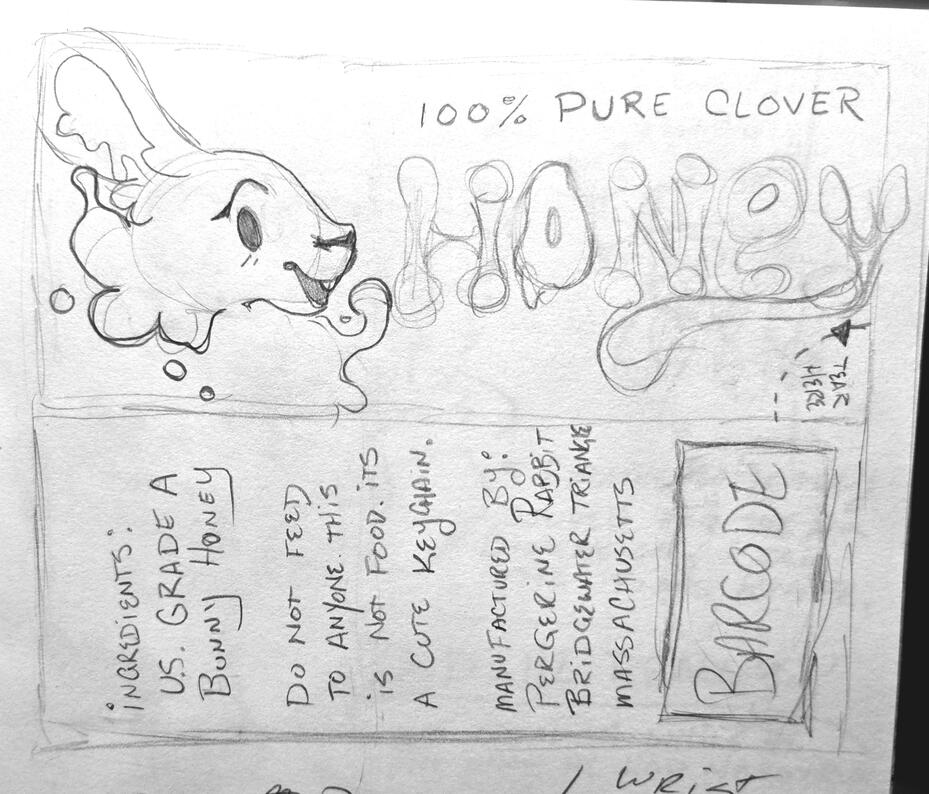 100% PURE CLOVER
HONEY
TEAR
HERE
INGREDIENTS:
U.S. GRADE A
BUNNY HONEY
DO NOT FEED
TO ANYONE. THIS
IS NOT FOOD. ITS
A CUTE KEYCHAIN.
MANUFACTURED BY:
PERGERINE RABBIT
BRIDGEWATER TRIANGLE
MASSACHUSETTS
BARCODE
WRIST